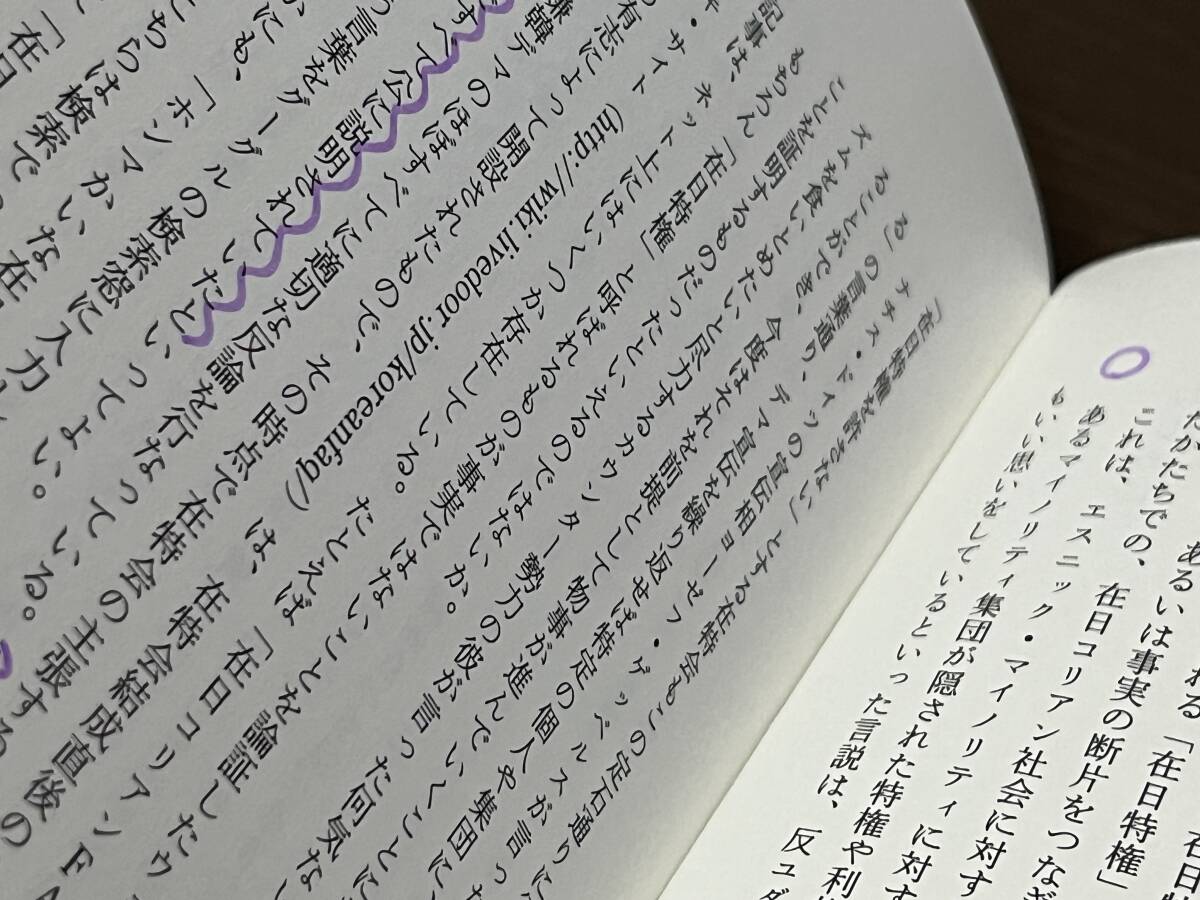 在日特
れる「在日特権」
あるいは事実の断片をつなぎ
たかたちでの、在日コリアン社会に対す
これは、エスニック・マイノリティに対す
あるマイノリティ集団が隠された特権や利
もいい思いをしているといった言説は、反ユダ
「在日特権を許さない」とする在特会もこの定石通りに
ナチス・ドイツの宣伝相ヨーゼフ・ゲッベルスが言っ
る」の言葉通り、デマ宣伝を繰り返せば特定の個人や集団に
ることができ、今度はそれを前提として物事が進んでいくことに
ズムを食いとめたいと尽力するカウンター勢力の彼が言った何気な
ことを証明するものだったといえるのではないか。
もちろん「在日特権」と呼ばれるものが事実ではないことを論証したウ
記事は、ネット上にはいくつか存在している。たとえば「在日コリアンFA
キ・サイト(http://wiki.livedoor.jp/koreanfaq/)は、在特会結成直後の
有志によって開設されたもので、その時点で在特会の主張する
嫌韓デマのほぼすべてに適切な反論を行なっている。
すべて公に説明されていたといってよい。
う言葉をグーグルの検索窓に入力
にも、「ホンマかいな在
ちらは検索で
「在日